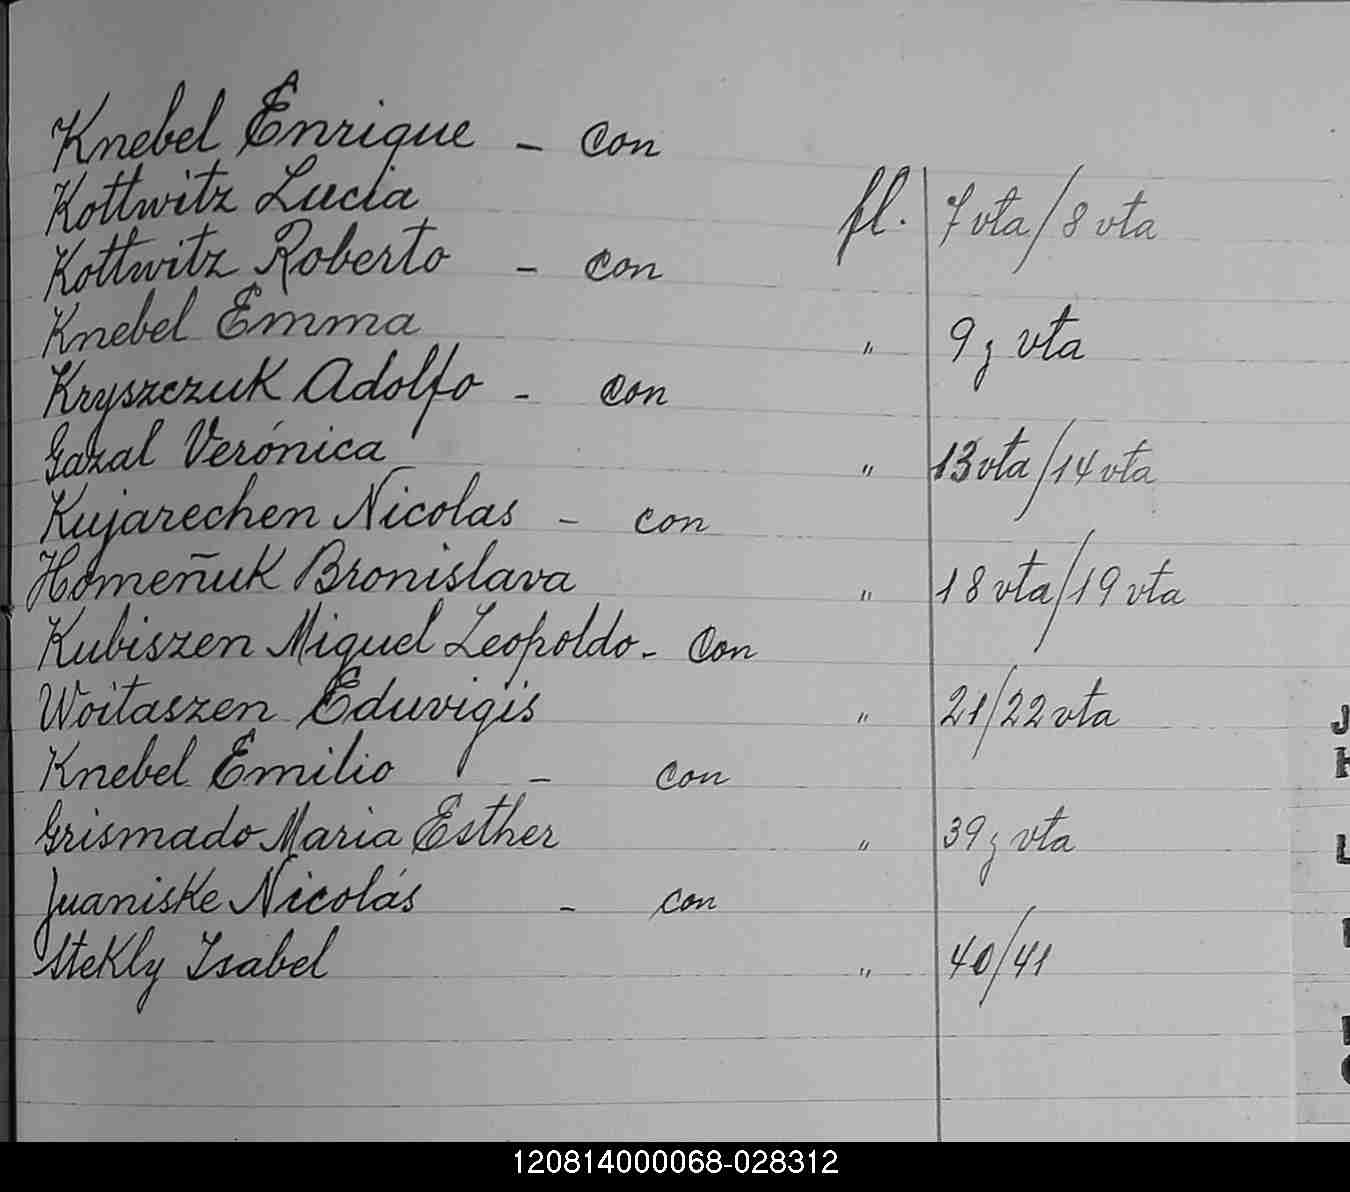 Knebel Enrique - con
Kottwitz Lucia fl. 7 vta/8 vta
Kottwitz Roberto - con
Knebel Emma " 9 y vta
Kryszczuk Adolfo - con
Gazal Verónica " 13 vta/14 vta
Kujarechen Nicolas - con
Homeñuk Bronislava " 18 vta/19 vta
Kubiszen Miguel Leopoldo - con
Woitaszen Eduvigis " 21/22 vta
Knebel Emilio - con
Grismado Maria Esther " 39 y vta
Juaniske Nicolás - con
Stekly Isabel " 40/41
120814000068-028312